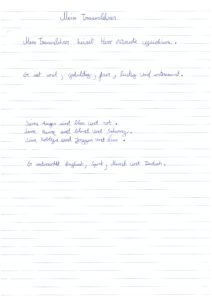 Mein Traumlehrer
Mein Traumlehrer heisst Herr
Er ist und, geduldig, fair, lustig und interessant.
Seine Augen sind blau und rot.
Seine Haare sind blond und Schwarz.
Seine Hobbys sind Joggen und
Er unterrichtet Englisch, Sport, Kunst und Deutsch.